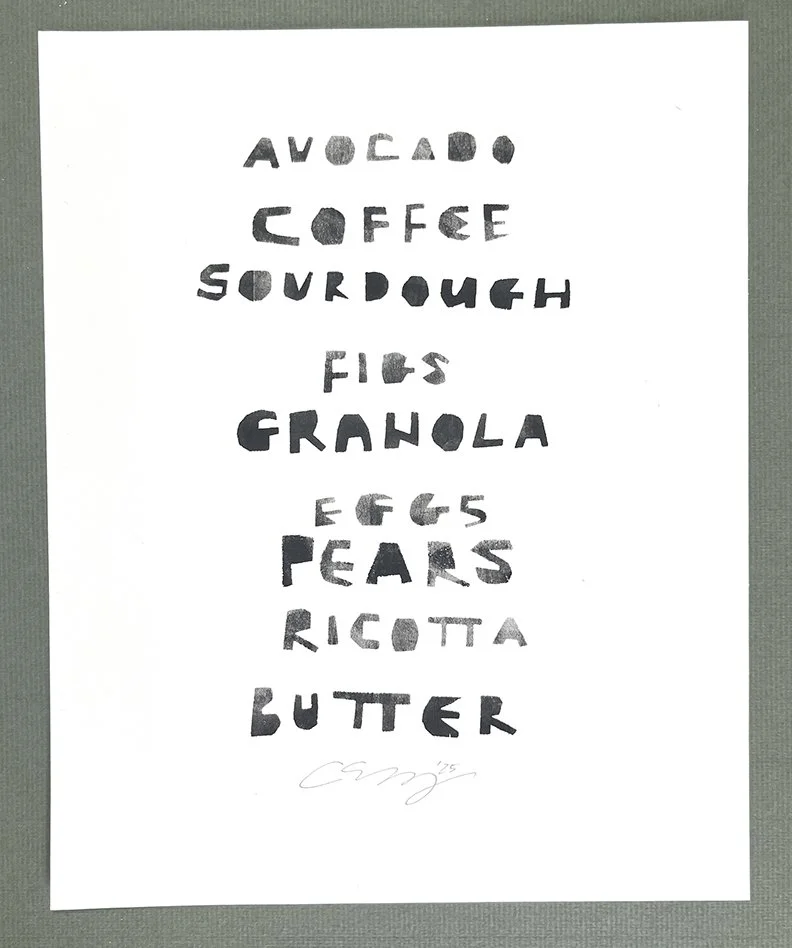 AVOCADO
COFFEE
SOURDOUGH
FIGS
GRANOLA
EGGS
PEARS
RICOTTA
BUTTER
'25